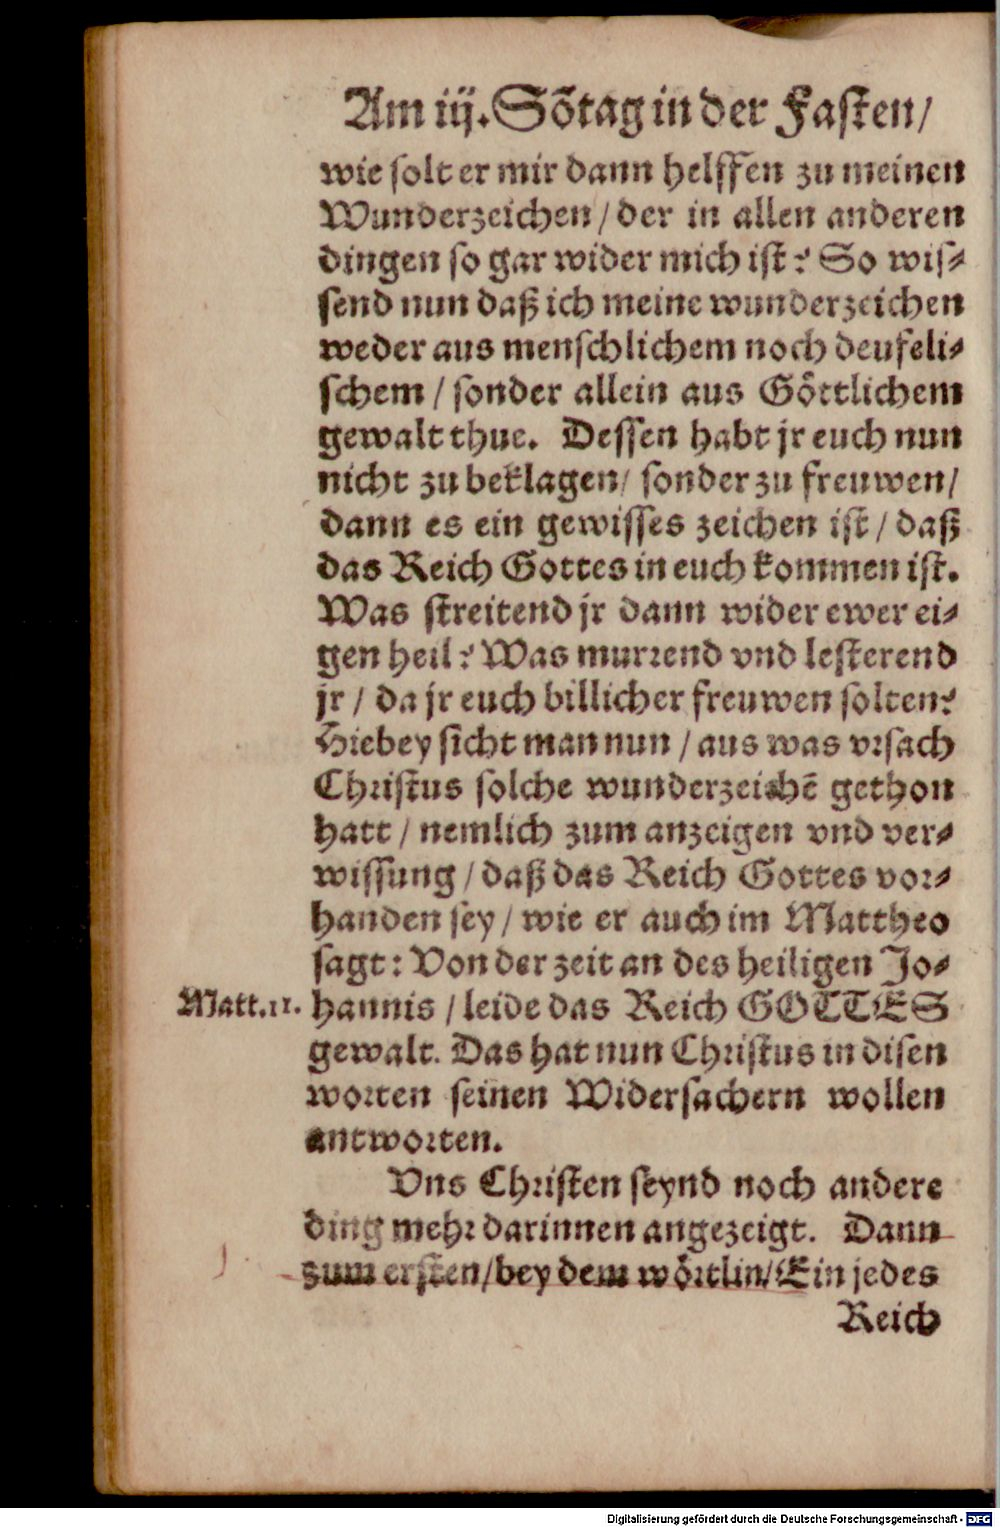 Am iij. Sõtag in der Fasten/
wie solt er mir dann helffen zu meinen
Wunderzeichen/ der in allen anderen
dingen so gar wider mich ist? So wis⸗
send nun daß ich meine wunderzeichen
weder aus menschlichem noch deufeli⸗
schem/ sonder allein aus Göttlichem
gewalt thue. Dessen habt jr euch nun
nicht zu beklagen/ sonder zu freuwen/
dann es ein gewisses zeichen ist/ daß
das Reich Gottes in euch kommen ist.
Was streitend jr dann wider ewer ei⸗
gen heil? Was murrend vnd lesterend
jr/ da jr euch billicher freuwen solten?
Hiebey sicht man nun/ aus was vrsach
Christus solche wunderzeichẽ gethon
hatt/ nemlich zum anzeigen vnd ver⸗
wissung/ daß das Reich Gottes vor⸗
handen sey/ wie er auch im Mattheo
sagt: Von der zeit an des heiligen Jo⸗
Matt.11. hannis/ leide das Reich GOTTES
gewalt. Das hat nun Christus in disen
worten seinen Widersachern wollen
antworten.
Vns Christen seynd noch andere
ding mehr darinnen angezeigt. Dann
zum ersten/ bey dem wörtlin/ Ein jedes
Reich
Digitalisierung gefördert durch die Deutsche Forschungsgemeinschaft - DFG